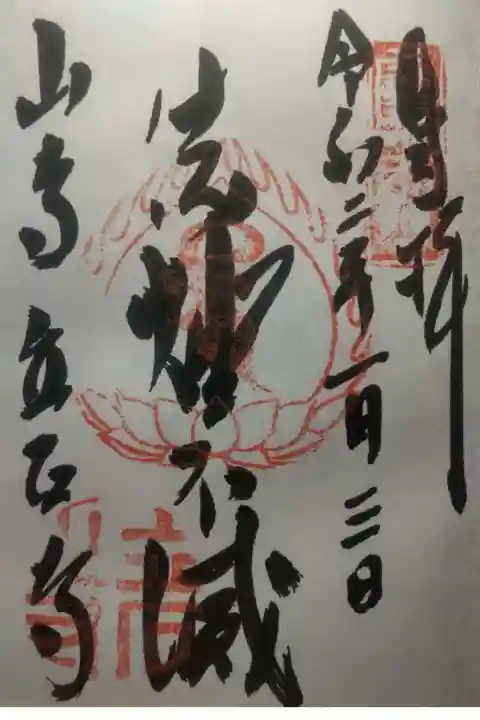 奉拝
令和二年一月三日
法燈不滅
山寺 立石寺